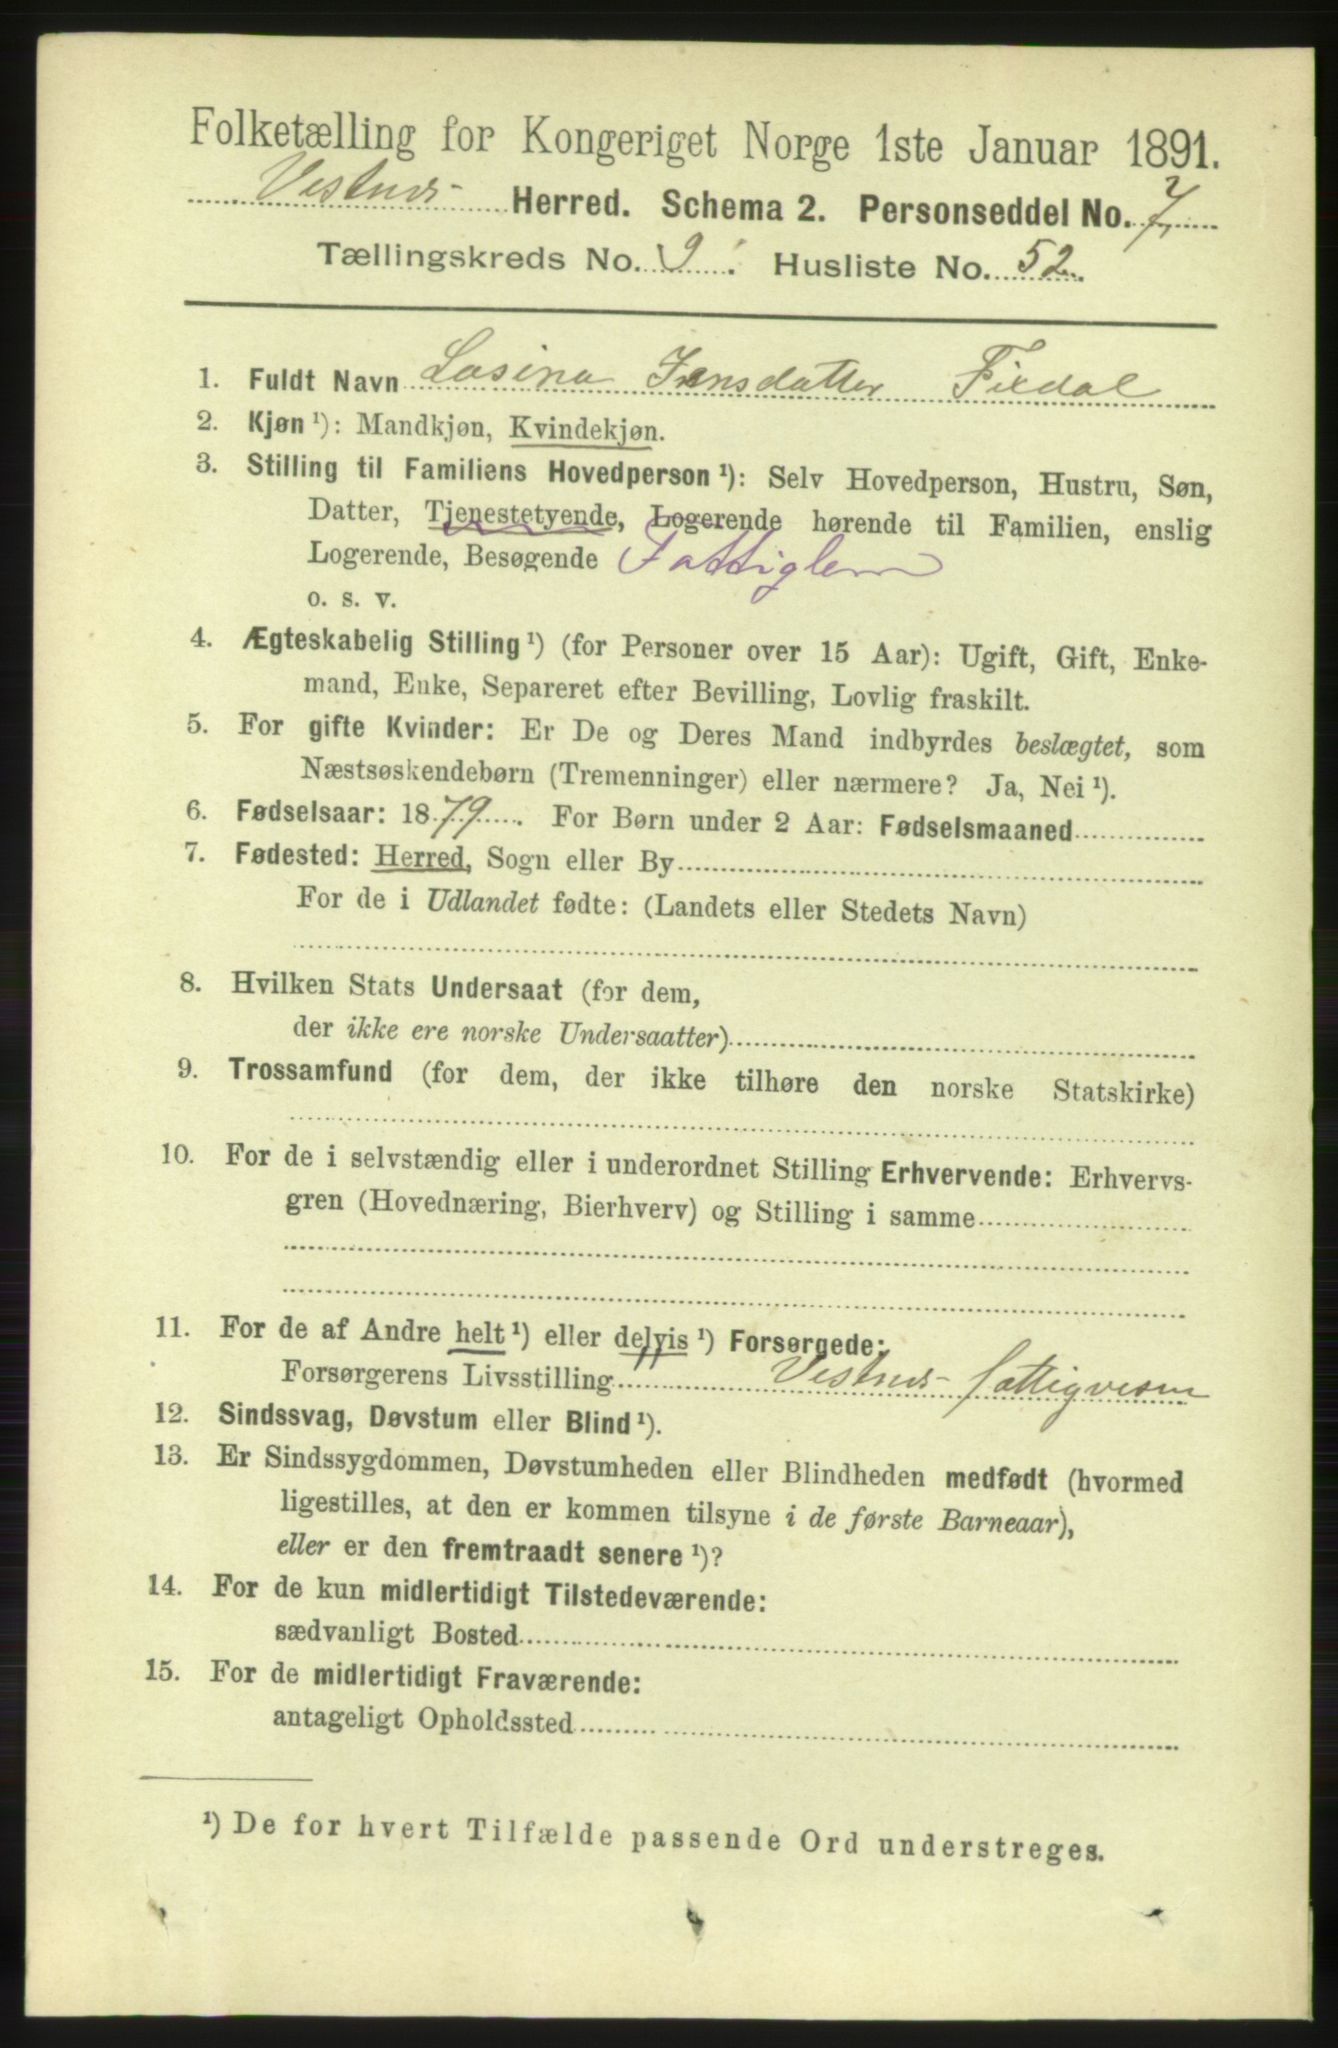 Folketælling for Kongeriget Norge 1ste Januar 1891.
Vestnes Herred. Schema 2. Personseddel No. 7.
Tællingskreds No. 9. Husliste No. 52.
1. Fuldt Navn Lasina Jensdatter Fixdal
2. Kjøn ¹): Mandkjøn, Kvindekjøn.
3. Stilling til Familiens Hovedperson ¹): Selv Hovedperson, Hustru, Søn,
Datter, Tjenestetyende, Logerende hørende til Familien, enslig
Logerende, Besøgende Fattiglem
o. s. v.
4. Ægteskabelig Stilling ¹) (for Personer over 15 Aar): Ugift, Gift, Enke-
mand, Enke, Separeret efter Bevilling, Lovlig fraskilt.
5. For gifte Kvinder: Er De og Deres Mand indbyrdes beslægtet, som
Næstsøskendebørn (Tremenninger) eller nærmere? Ja, Nei ¹).
6. Fødselsaar: 1879. For Børn under 2 Aar: Fødselsmaaned
7. Fødested: Herred, Sogn eller By
For de i Udlandet fødte: (Landets eller Stedets Navn)
8. Hvilken Stats Undersaat (for dem,
der ikke ere norske Undersaatter)
9. Trossamfund (for dem, der ikke tilhøre den norske Statskirke)
10. For de i selvstændig eller i underordnet Stilling Erhvervende: Erhvervs-
gren (Hovednæring, Bierhverv) og Stilling i samme
11. For de af Andre helt ¹) eller delvis ¹) Forsørgede:
Forsørgerens Livsstilling Vestnes fattigvesen
12. Sindssvag, Døvstum eller Blind ¹).
13. Er Sindssygdommen, Døvstumheden eller Blindheden medfødt (hvormed
ligestilles, at den er kommen tilsyne i de første Barneaar),
eller er den fremtraadt senere ¹)?
14. For de kun midlertidigt Tilstedeværende:
sædvanligt Bosted
15. For de midlertidigt Fraværende:
antageligt Opholdssted
¹) De for hvert Tilfælde passende Ord understreges.